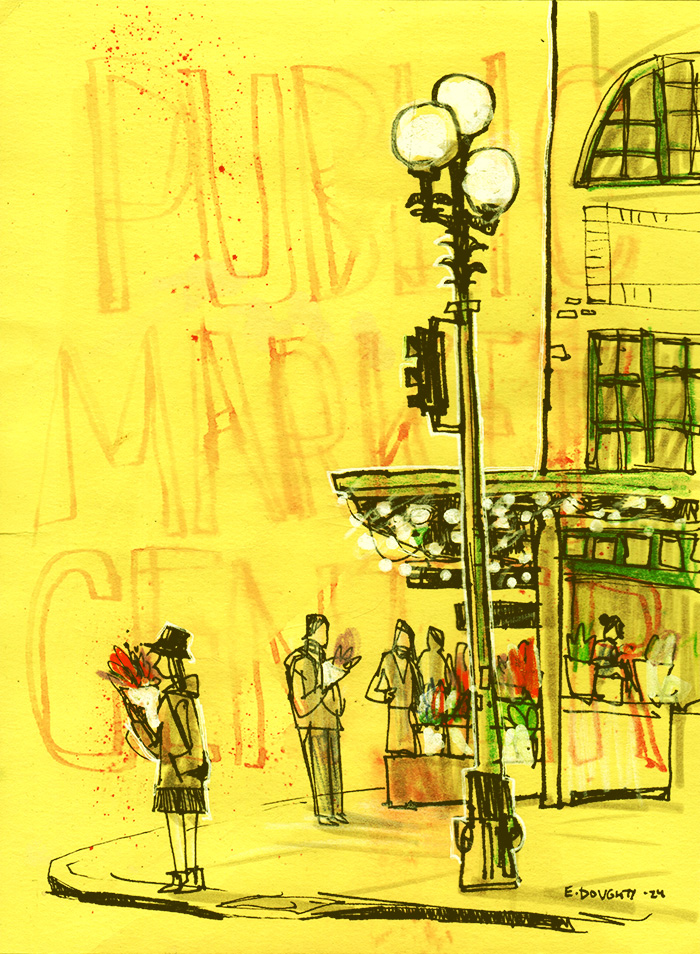 PUBLIC
MARKET
CENTER
E. DOUGHTY -24